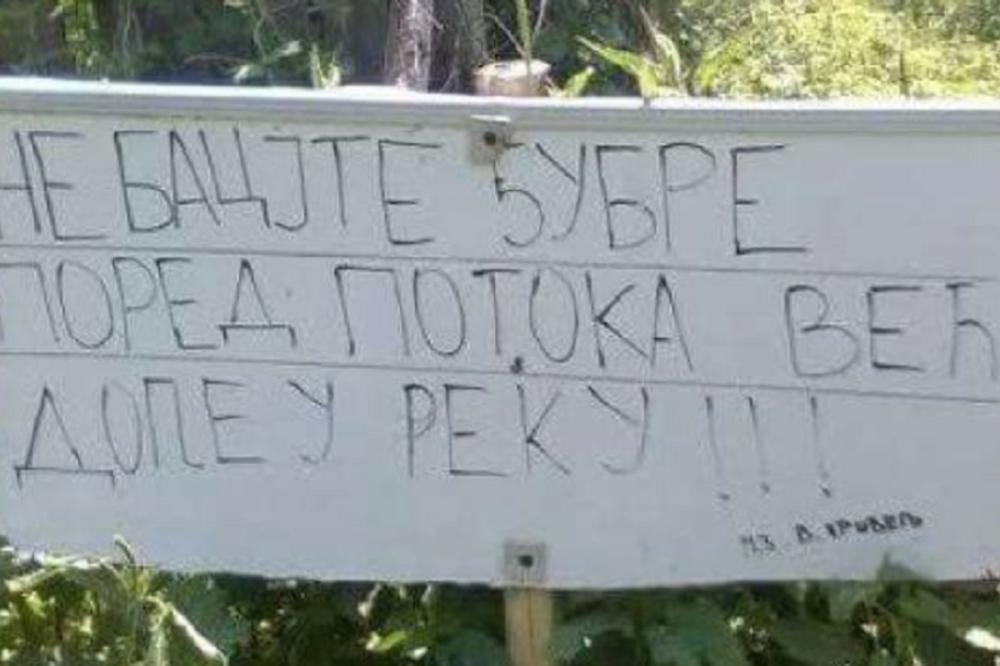 НЕ БАЦЈТЕ ЂУБРЕ
ПОРЕД ПОТОКА ВЕЋ
ДОЛЕ У РЕКУ !!!
МЗ В. КРИВЕЉ